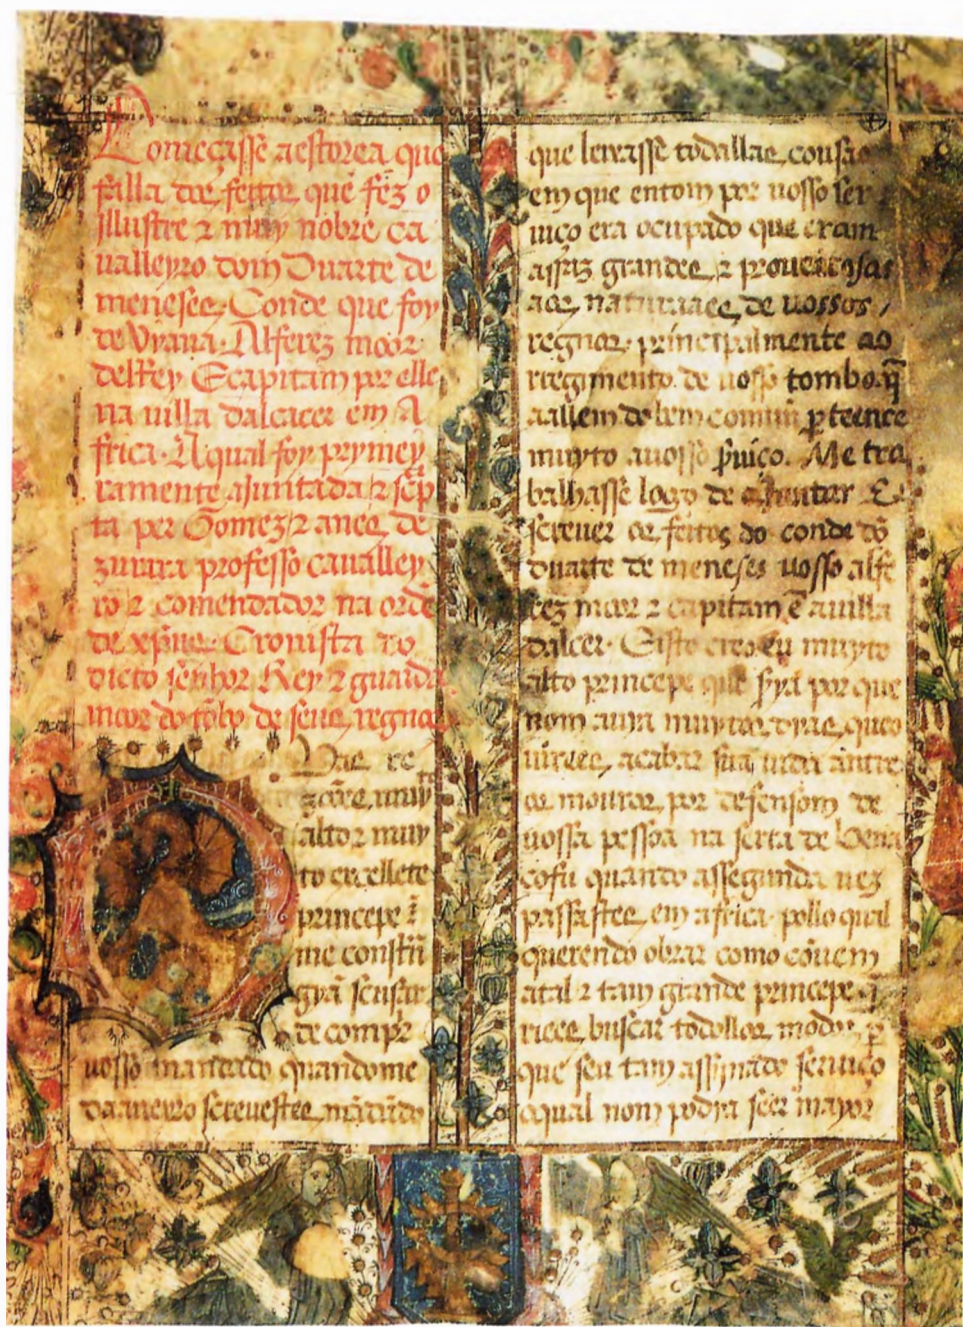 Começasse aestorea que
falla dos feitos que fez o
Illustre ⁊ muy nobre ca
ualleyro dom Duarte de
meneses. Conde que foy
de Viana. Alferez moor
delRey E capitam por elle
na uilla dalcacer em A
frica. A qual foy prymey
ramente ajuntada ⁊ scp̃
ta per Gomez eanes de
zurara professo caualley
ro ⁊ comendador na ordẽ
de xp̃us. Cronista do
dicto senhor Rey ⁊ guarda
moor do tõbo de seus regnos
muy
altos muy
to excellẽte
princepe
me
de
uosso mandado quandome
daaueyro screuestes
que leixasse todallas cousas
em que entom por uosso ser
uiço era ocupado que eram
assaz grandes ⁊ proueitosas
aos naturaaes de uossos
regnos. principalmente ao
rregimento de uosso tombo. q̃
aallem do bem comum ꝑteence
muyto auosso ẜuiço. Me tra
balhasse logo de ajuntar E
screuer os feitos do conde dõ
duarte de meneses uosso alfe
rez moor ⁊ capitam ẽ auilla
dalcer. E isto creo eu muyto
alto princepe que syra por que
nom auia muytos dias que o
uirees acabar sua uida antre
os mouros por defensom de
uossa pessoa na serra de bena
cofu quando assegunda uez
passastes em africa. pollo qual
querendo obrar como cõuem
atal ⁊ tam grande princepe. q̃
sees buscar todollos modos ꝑ
que seu tam assijnado seruiço
oqual nom podia seer mayor